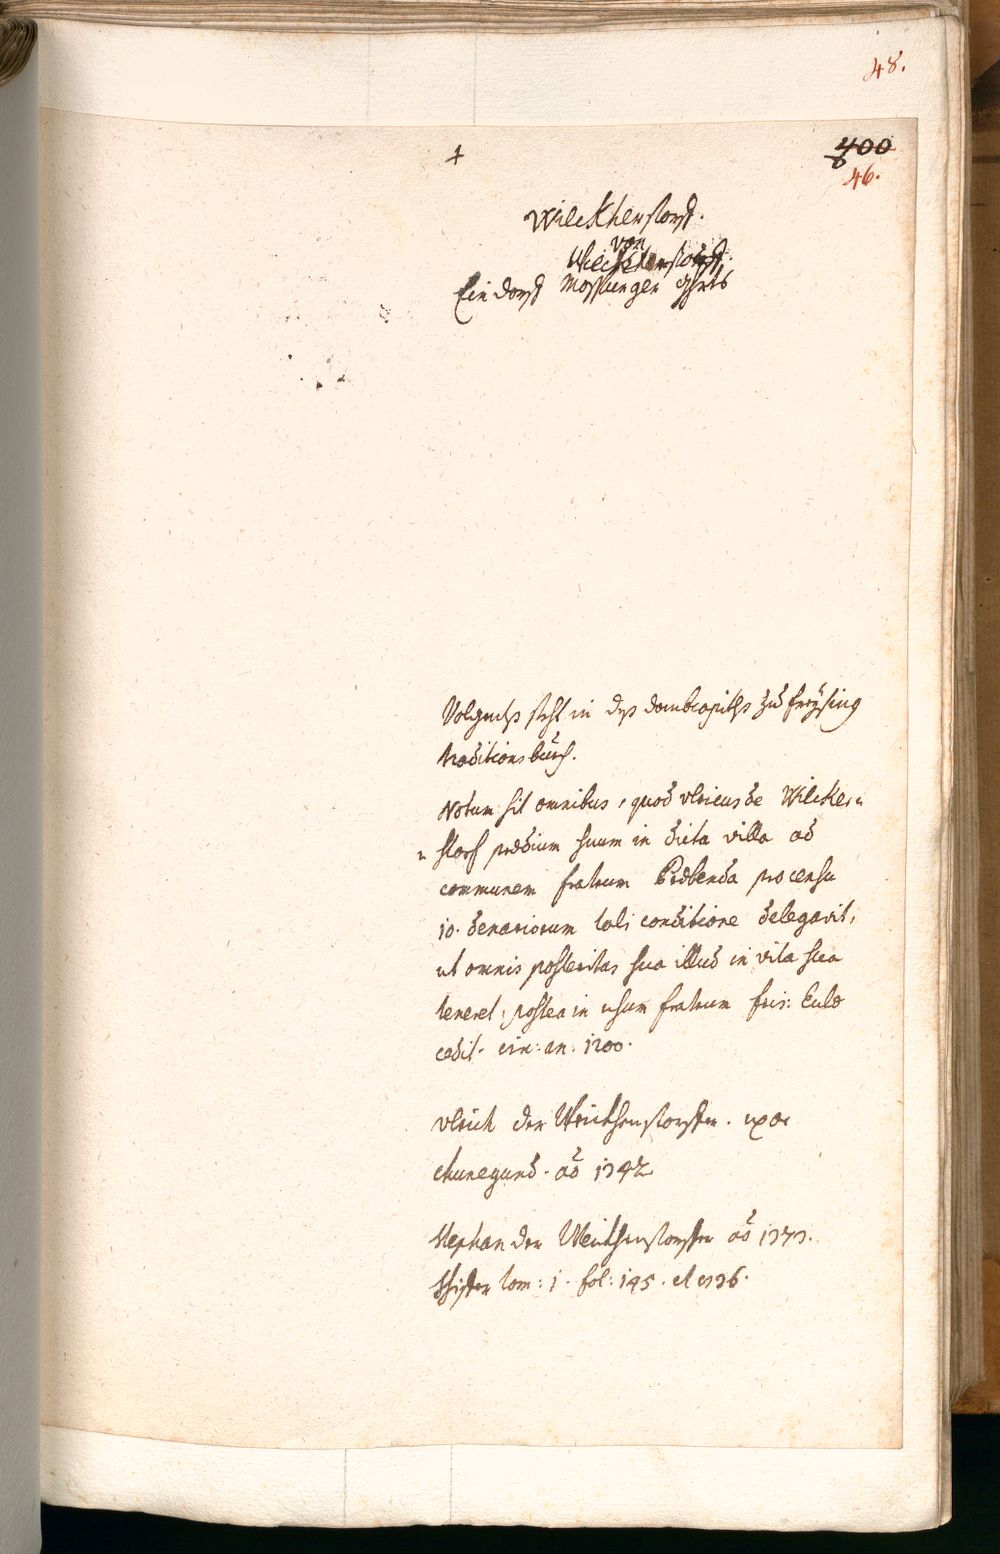 48.
400
46.
Wilckherstorf.
von
Ein dorf Mospurger ghrts
Volgents steht in dess dombcapitls zu freysing
traditionsbuech.
Notum sit omnibus, quod vlricus de Wilcker=
=storf prædium suum in dicta villa ad
communem fratrum Præbenda pro censu
10. denariorum tali conditione delegavit,
ut omnis posteritas sua illud in vita sua
teneret, postea in usum fratrum fris: Eccl
cadit. cir: an: 1200.
vlrich der Weickhenstorffer. uxor
Chunegund. ao 1342
Stephan der Weickhenstorffer ao 1373.
tom: 1. fol: 195. et